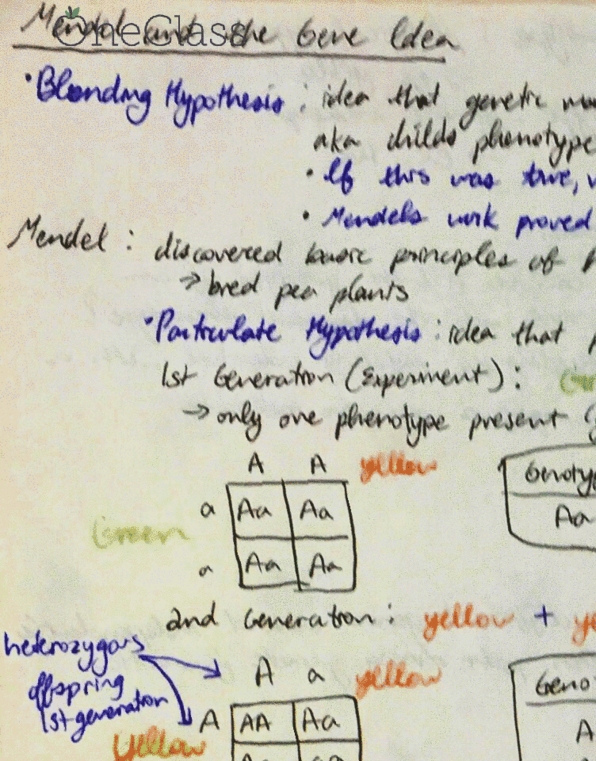 Mendel and the Gene Idea
OneClass
• Blending Hypothesis : idea that genetic
aka childs phenotype
• If this was true,
• Mendels work proved
Mendel : discovered basic principles of
→ bred pea plants
• Particulate Hypothesis : idea that
1st Generation (Experiment) :
→ only one phenotype present
A A yellow
a Aa Aa
Green
a Aa Aa
Genoty
Aa
2nd Generation : yellow + ye
heterozygous
offspring
1st generation
A a yellow
A AA Aa
Yellow
Geno
A